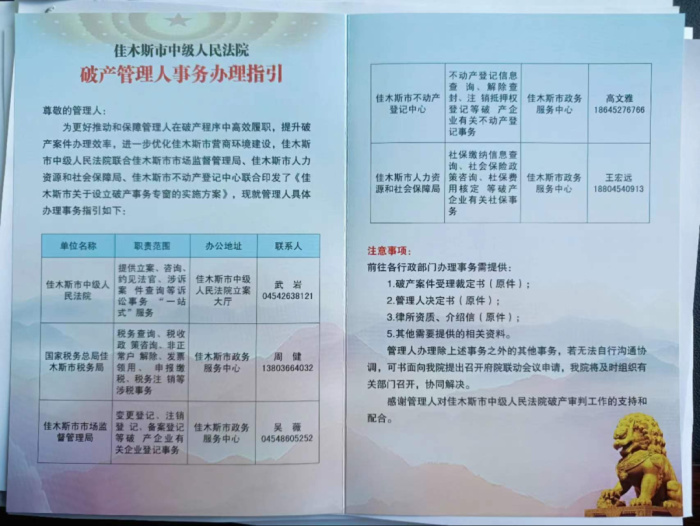 佳木斯市中级人民法院
破产管理人事务办理指引
尊敬的管理人：
为更好推动和保障管理人在破产程序中高效履职，提升破
产案件办理效率，进一步优化佳木斯市营商环境建设，佳木斯
市中级人民法院联合佳木斯市市场监督管理局、佳木斯市人力
资源和社会保障局、佳木斯市不动产登记中心联合印发了《佳
木斯市关于设立破产事务专窗的实施方案》，现就管理人具体
办理事务指引如下：
单位名称 职责范围 办公地址 联系人
佳木斯市中级人
民法院
提供立案、咨询、
约见法官、涉诉
案 件查询等诉
讼事务 “一站
式”服务
佳木斯市中级
人民法院立案
大厅
武 岩
04542638121
国家税务总局佳
木斯市税务局
税务查询、税收
政 策咨询、非正
常户 解除、发票
领用、 申报缴
税、税务注 销等
涉税事务
佳木斯市政务
服务中心
周 健
13803664032
佳木斯市市场监
督管理局
变更登记、注销
登 记、备案登记
等破 产企业有
关企业登记事务
佳木斯市政务
服务中心
吴 薇
04548605252
佳木斯市不动产
登记中心
不动产登记信息
查 询、解除查
封、注 销抵押权
登记等破 产企
业有关不动产登
记事务
佳木斯市政务
服务中心
高文雅
18645276766
佳木斯市人力资
源和社会保障局
社保缴纳信息查
询、社会保险政
策咨询、社保费
用核定 等破产
企业有关社保事
务
佳木斯市政务
服务中心
王宏远
18804540913
注意事项：
前往各行政部门办理事务需提供：
1.破产案件受理裁定书（原件）；
2.管理人决定书（原件）；
3.律所资质、介绍信（原件）；
5.其他需要提供的相关资料。
管理人办理除上述事务之外的其他事务，若无法自行沟通协
调，可书面向我院提出召开府院联动会议申请，我院将及时组织有
关部门召开，协同解决。
感谢管理人对佳木斯市中级人民法院破产审判工作的支持和
配合。